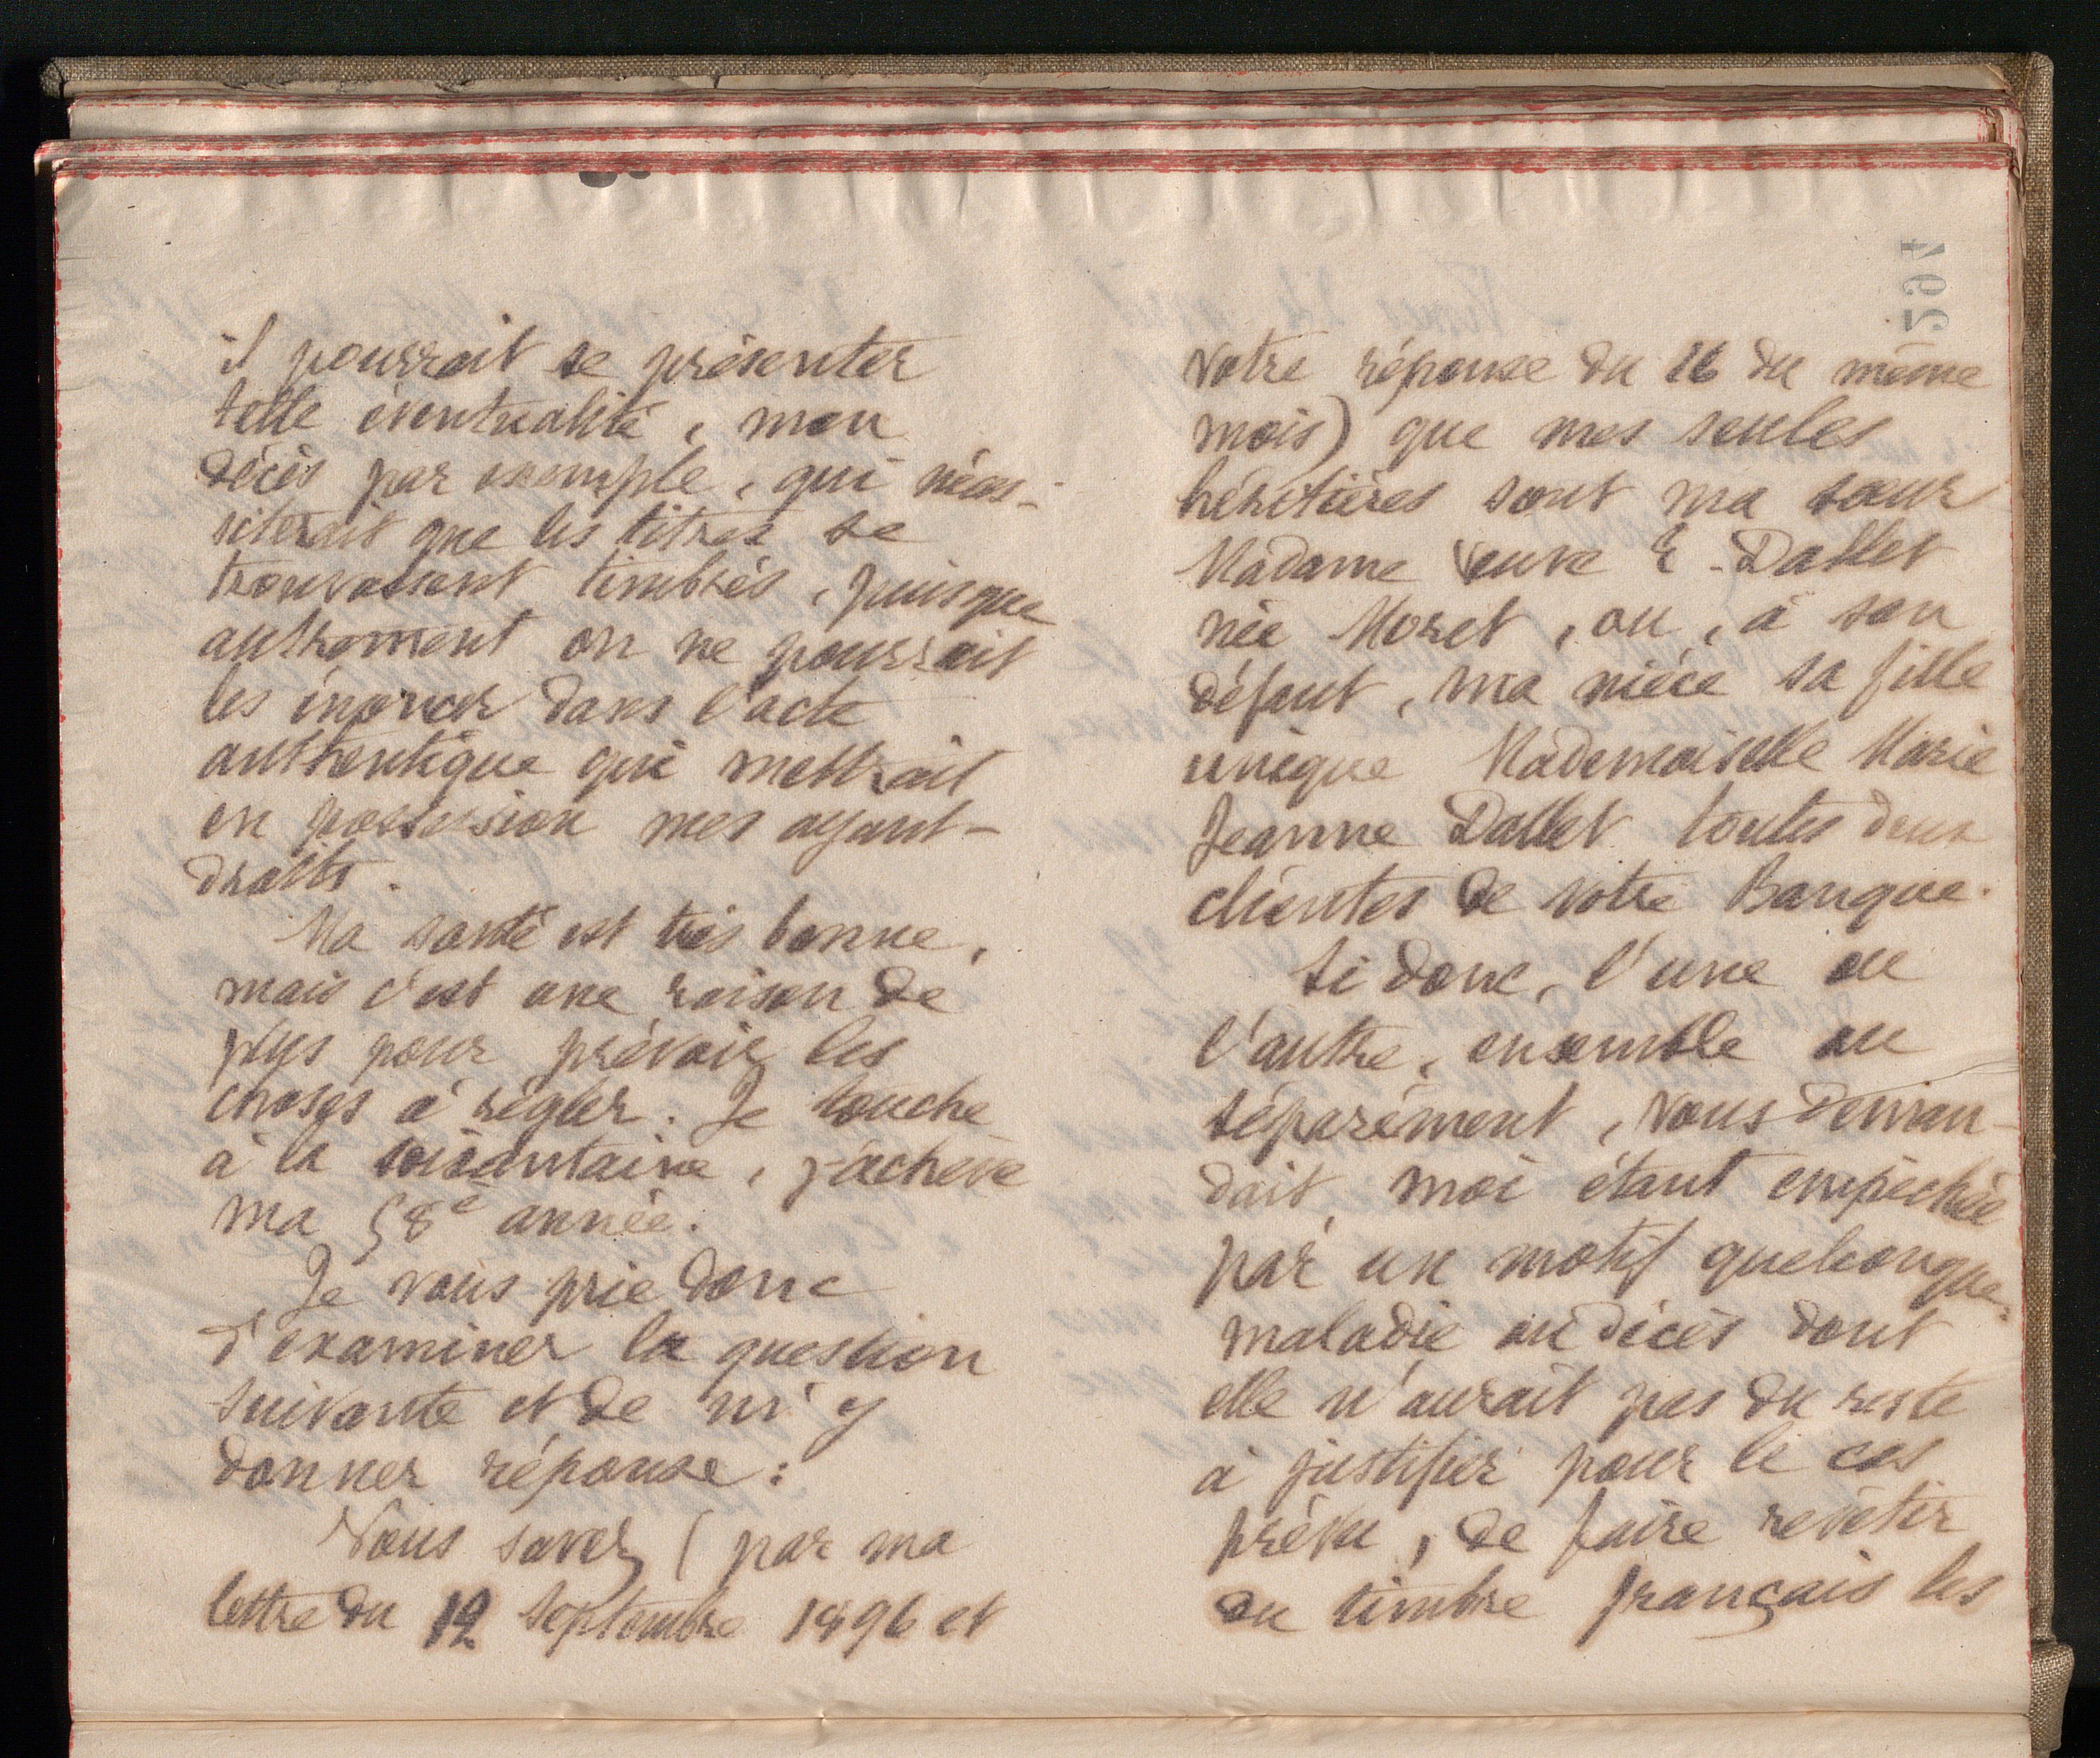 il pourrait se présenter
telle éventualité, mon
décès par exemple, qui néces-
siterait que les titres se
trouvassent timbrés, puisque
autrement on ne pourrait
les énoncer dans l'acte
authentique qui mettrait
en possession mes ayant-
droits.
Ma santé est très bonne,
mais c'est une raison de
plus pour prévoir les
choses à régler. Je touche
à la soixantaine, j'achève
ma 58e année.
Je vous prie donc
d'examiner la question
suivante et de m'y
donner réponse :
Vous savez (par ma
lettre du 12 septembre 1896 et
votre réponse du 16 du même
mois) que mes seules
héritières sont ma sœur
Madame Veuve E. Dallet
née Moret, ou, à son
défaut, ma nièce sa fille
unique Mademoiselle Marie
Jeanne Dallet toutes deux
clientes de votre Banque.
Si donc, l'une ou
l'autre, ensemble ou
séparément, vous deman-
dait, moi étant empêchée
par un motif quelconque,
maladie ou décès dont
elle n'aurait pas du reste
à justifier pour le cas
prévu, de faire revêtir
du timbre français les